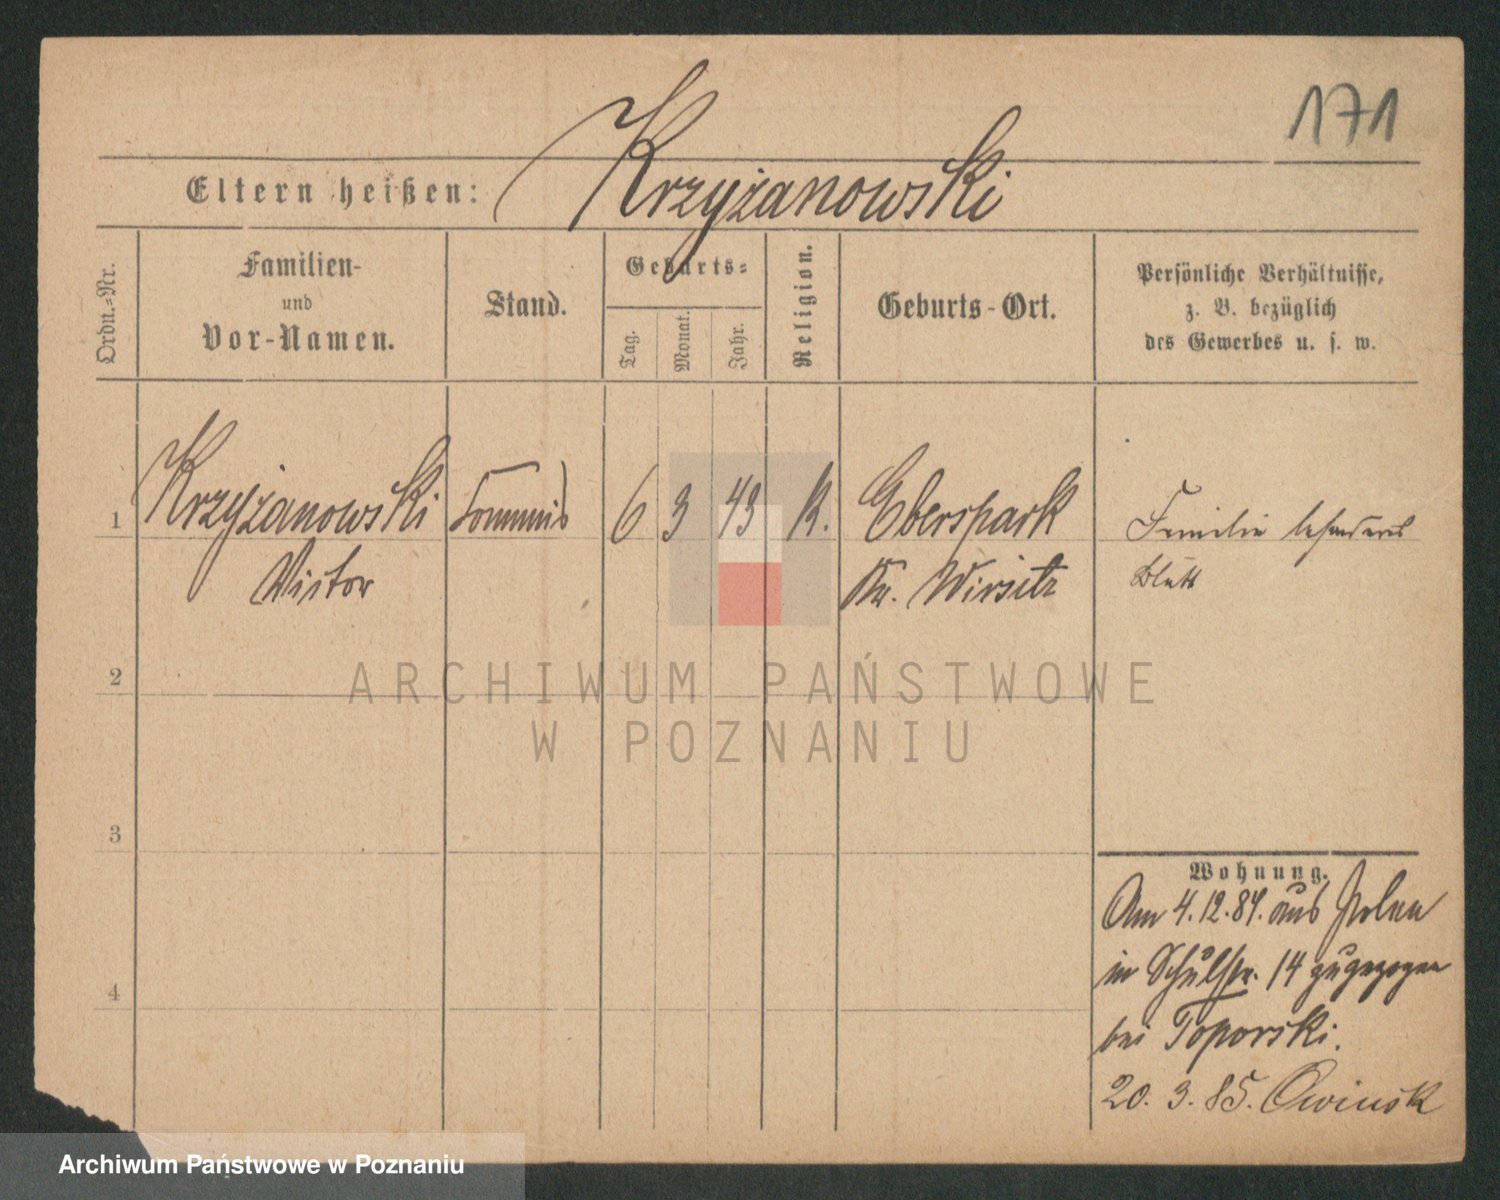 171
Eltern heißen: Krzyżanowski
Ordn.-Nr.
Familien-
und
Vor-Namen.
Stand.
Geburts-
Tag.
Monat.
Jahr.
Religion.
Geburts-Ort.
Persönliche Verhältnisse,
z. B. bezüglich
des Gewerbes u. s. w.
1 Krzyżanowski Commis 6 3 43 K. Eberspark Familie besonderes
Victor Kr. Wirsitz Blatt
2
ARCHIWUM PAŃSTWOWE
W POZNANIU
3
4
Wohnung.
Am 4.12.84. aus Polen
in Schulstr. 14 zugezogen
bei Toporski.
20. 3. 85. Owinsk
Archiwum Państwowe w Poznaniu